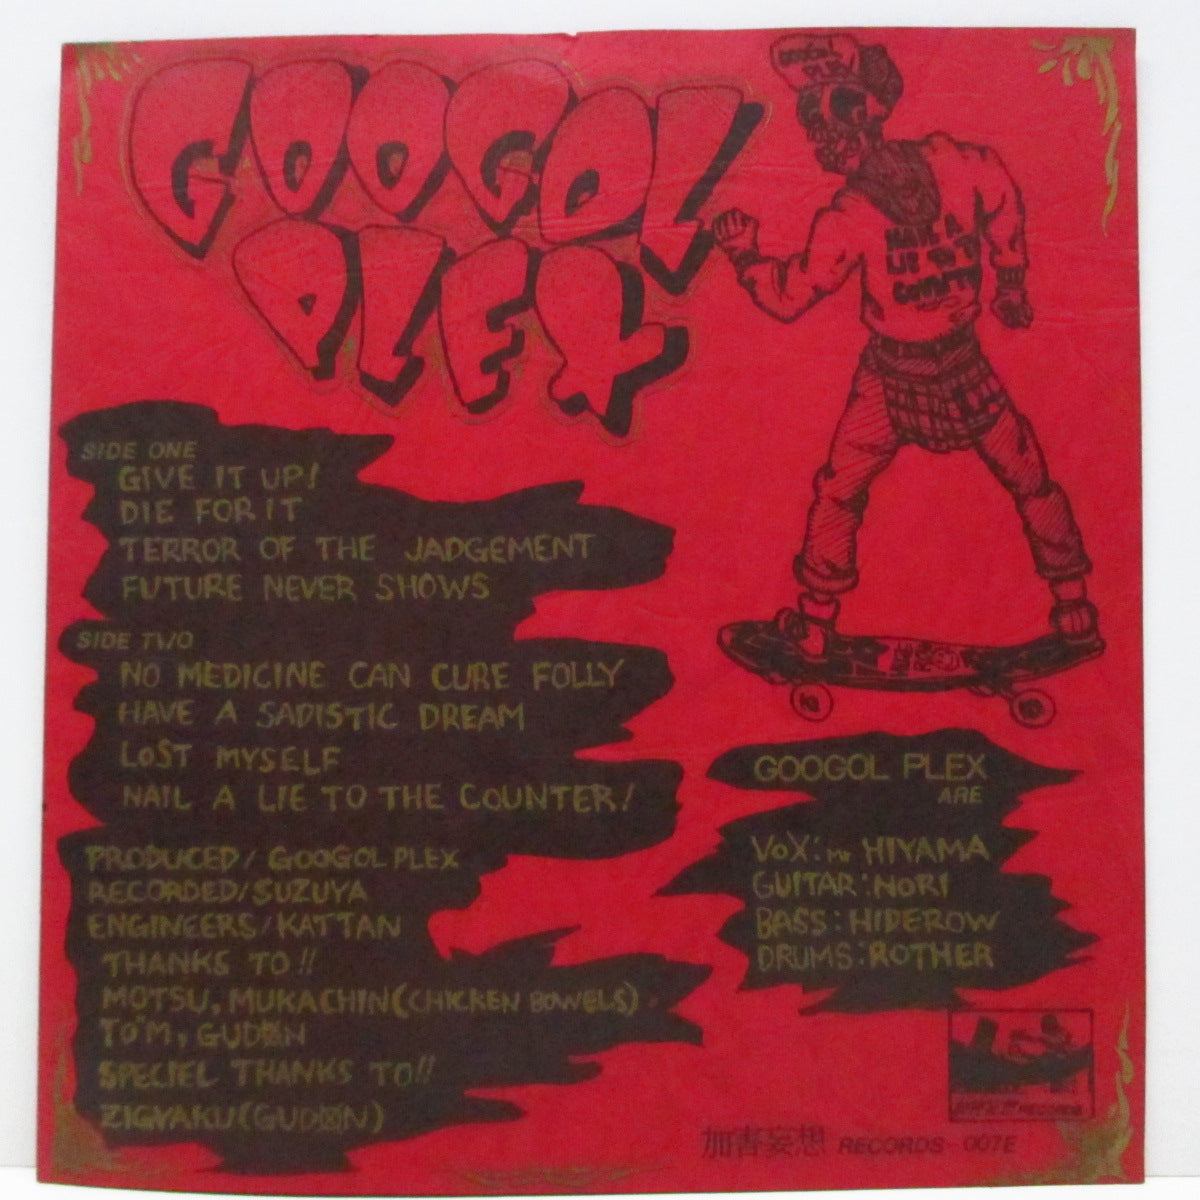 GOOGOL
PLEX
GOOGOL
PLEX
HAVE A
LIE TO T
COUNTE
SIDE ONE
GIVE IT UP!
DIE FOR IT
TERROR OF THE JADGEMENT
FUTURE NEVER SHOWS
SIDE TWO
NO MEDICINE CAN CURE FOLLY
HAVE A SADISTIC DREAM
LOST MYSELF
NAIL A LIE TO THE COUNTER!
PRODUCED/GOOGOL PLEX
RECORDED/SUZUYA
ENGINEERS/KATTAN
THANKS TO!!
MOTSU, MUKACHIN(CHICKEN BOWELS)
TO"M, GUDØN
SPECIEL THANKS TO!!
ZIGYAKU(GUDØN)
GOOGOL PLEX
ARE
VOX: Mr HIYAMA
GUITAR: NORI
BASS: HIDEROW
DRUMS: ROTHER
RECORDS
加害妄想 RECORDS 007E